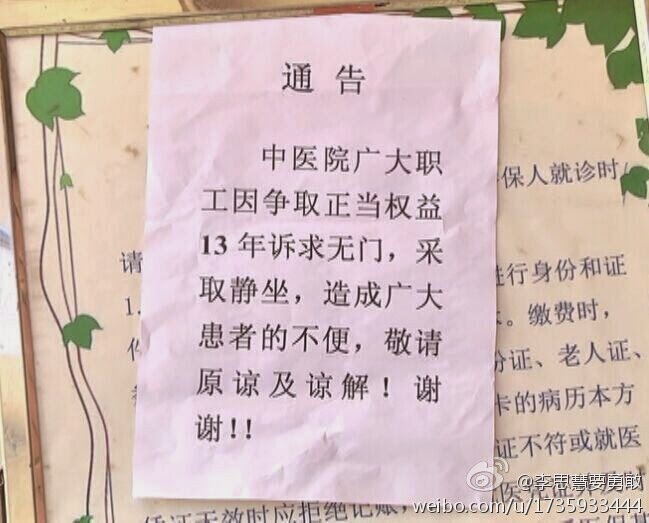 通 告
中医院广大职
工因争取正当权益
13 年诉求无门，采
取静坐，造成广大
患者的不便，敬请
原谅及谅解！谢
谢!!
保人就诊时
请
进行身份和证
1.
。缴费时，
份证、老人证、
卡的病历本方
证不符或就医
凭证无效时应拒绝记账，
@李思慧要勇敢
weibo.com/u/1735933444